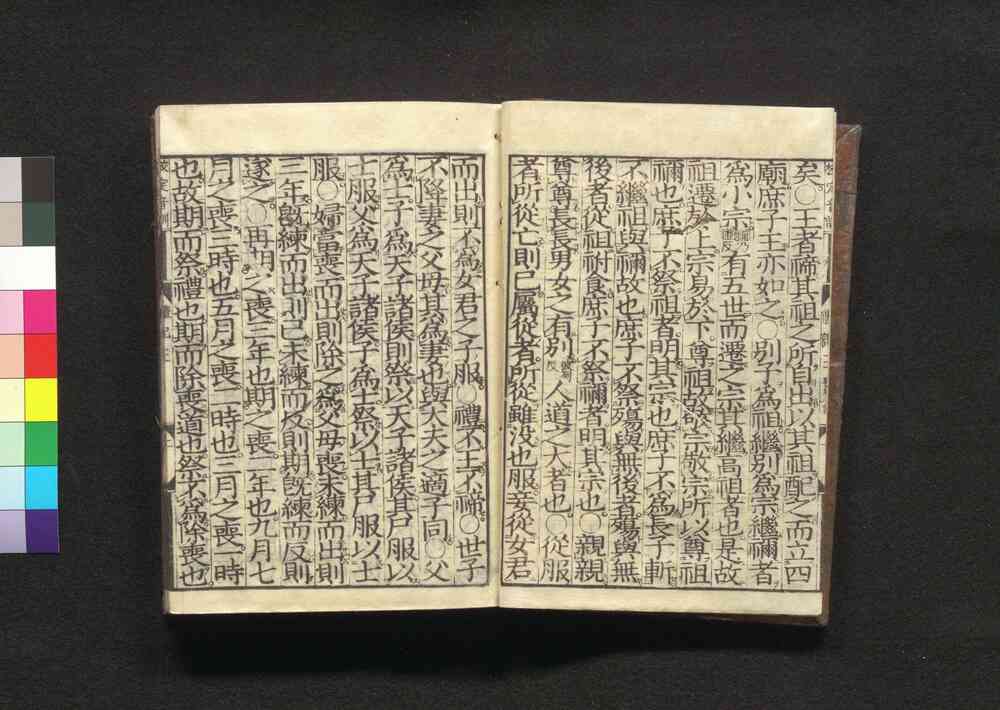 矣○王者禘其祖之所自出以其祖配之而立四
廟庶子王亦如之○別子爲祖繼別爲宗繼禰者
爲小宗有五世而遷之宗其繼高祖者也是故
祖遷於上宗易於下尊祖故敬宗敬宗所以尊祖
禰也庶子不祭祖者明其宗也庶子不爲長子斬
不繼祖與禰故也庶子不祭殤與無後者殤與無
後者從祖祔食庶子不祭禰者明其宗也○親親
尊尊長長男女之有別人道之大者也○從服
者所從亡則已屬從者所從雖没也服妾從女君
而出則不爲女君之子服○禮不王不禘○世子
不降妻之父母其爲妻也與大夫之適子同○父
爲士子爲天子諸侯則祭以天子諸侯其尸服以
士服父爲天子諸侯子爲士祭以士其尸服以士
服○婦當喪而出則除之爲父母喪未練而出則
三年旣練而出則已未練而反則期旣練而反則
遂之○再期之喪三年也期之喪二年也九月七
月之喪三時也五月之喪二時也三月之喪一時
也故期而祭禮也期而除喪道也祭不爲除喪也